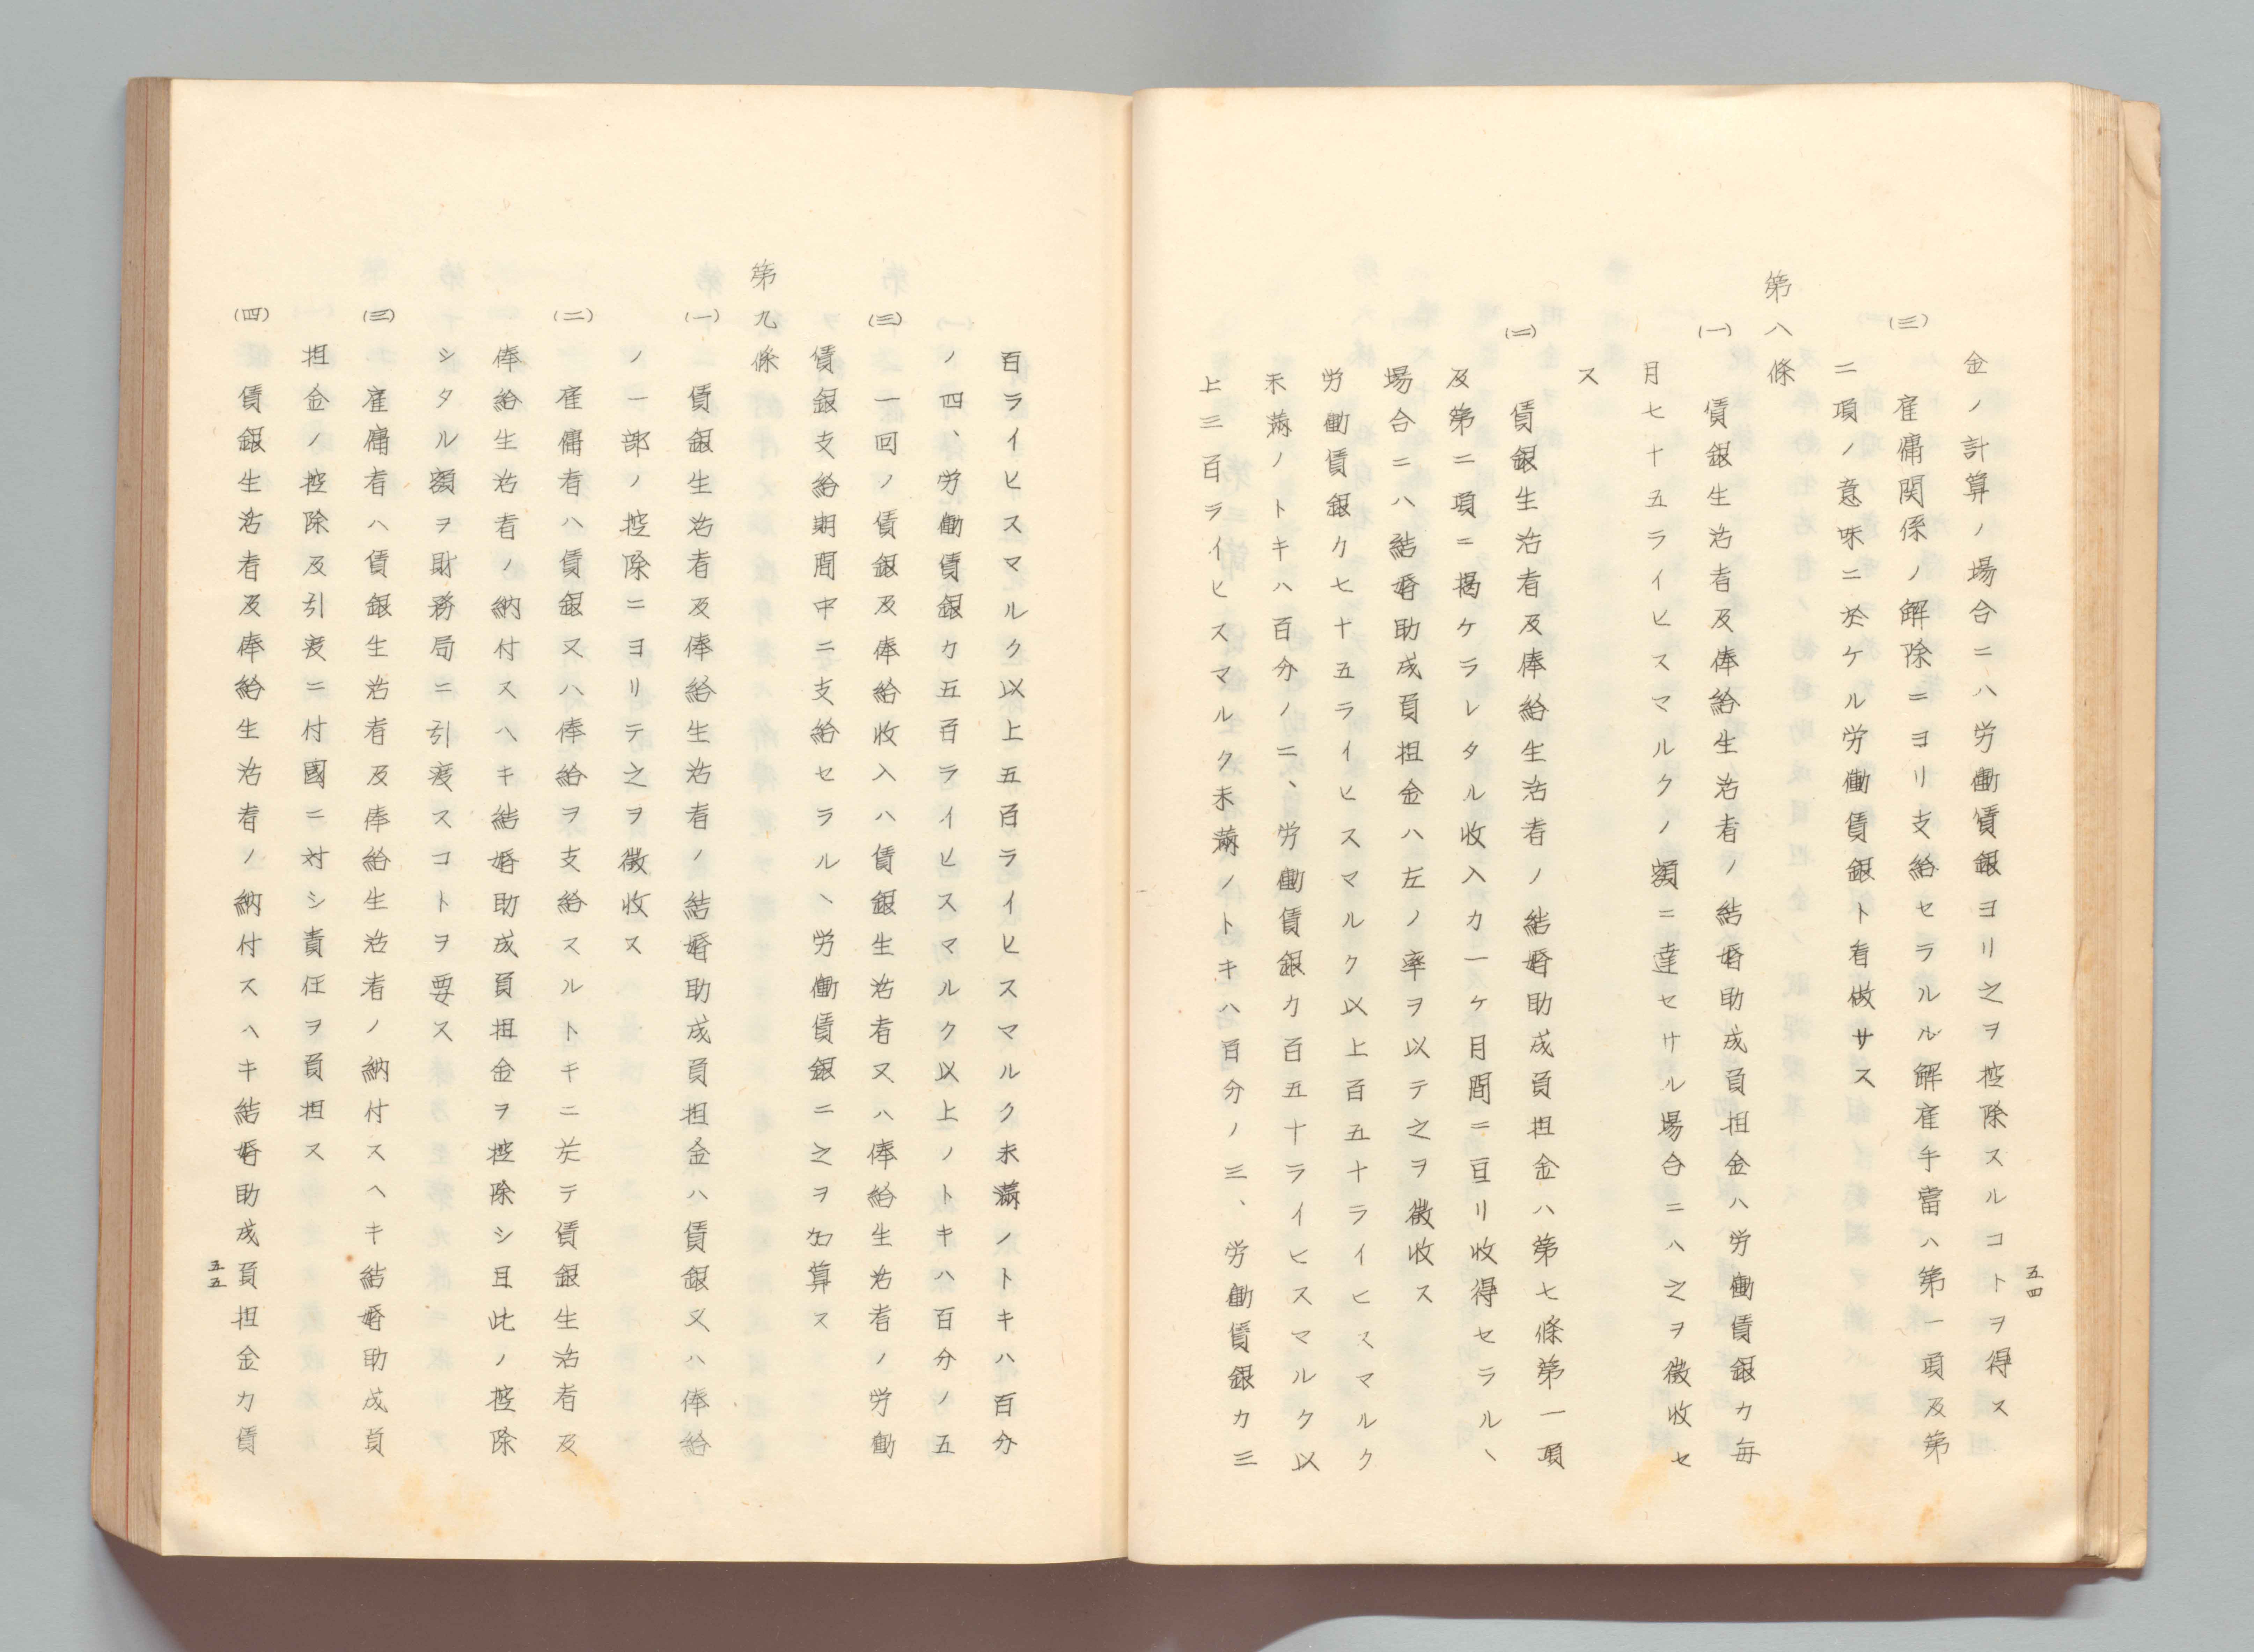 金ノ計算ノ場合ニハ労働賃銀ヨリ之ヲ控除スルコトヲ得ス
(三)雇傭関係ノ解除ニヨリ支給セラルル解雇手當ハ第一項及第
二項ノ意味ニ於ケル労働賃銀ト看做サス
第八條
(一)賃銀生活者及俸給生活者ノ結婚助成負担金ハ労働賃銀カ毎
月七十五ライヒスマルクノ額ニ達セサル場合ニハ之ヲ徴收セ
ス
(二)賃銀生活者及俸給生活者ノ結婚助成負担金ハ第七條第一項
及第二項ニ掲ケラレタル收入カ一ケ月間ニ亘リ收得セラルヽ
場合ニハ結婚助成負担金ハ左ノ率ヲ以テ之ヲ徴收ス
労働賃銀カ七十五ライヒスマルク以上百五十ライヒスマルク
未満ノトキハ百分ノ二、労働賃銀カ百五十ライヒスマルク以
上三百ライヒスマルク未満ノトキハ百分ノ三、労働賃銀カ三
五四
百ライヒスマルク以上五百ライヒスマルク未満ノトキハ百分
ノ四、労働賃銀カ五百ライヒスマルク以上ノトキハ百分ノ五
(三)一回ノ賃銀及俸給收入ハ賃銀生活者又ハ俸給生活者ノ労働
賃銀支給期間中ニ支給セラルヽ労働賃銀ニ之ヲ加算ス
第九條
(一)賃銀生活者及俸給生活者ノ結婚助成負担金ハ賃銀又ハ俸給
ノ一部ノ控除ニヨリテ之ヲ徴收ス
(二)雇傭者ハ賃銀又ハ俸給ヲ支給スルトキニ於テ賃銀生活者及
俸給生活者ノ納付スヘキ結婚助成負担金ヲ控除シ且此ノ控除
シタル額ヲ財務局ニ引渡スコトヲ要ス
(三)雇傭者ハ賃銀生活者及俸給生活者ノ納付スヘキ結婚助成負
担金ノ控除及引渡ニ付國ニ対シ責任ヲ負担ス
(四)賃銀生活者及俸給生活者ノ納付スヘキ結婚助成負担金カ賃
五五